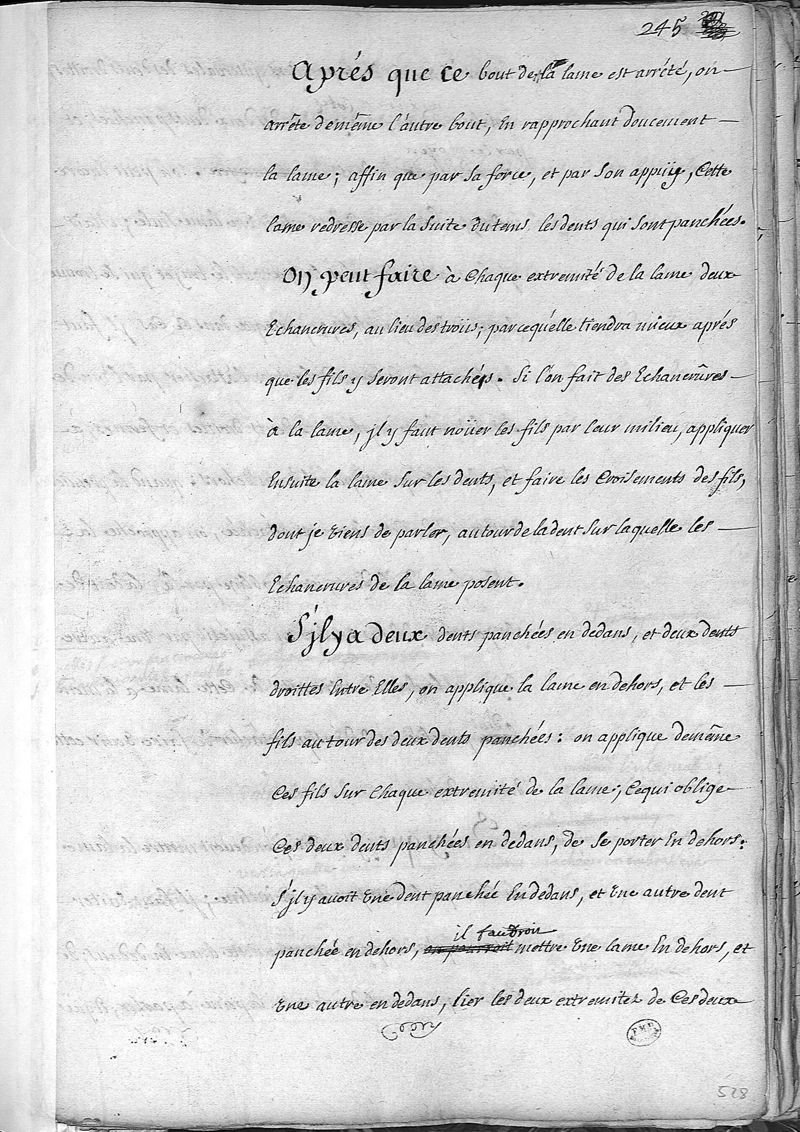 245
Aprés que ce bout de la lame est arrété, on
arréte demême l'autre bout, En rapprochant doucement
la lame; affin que par sa force, et par son appüy, Cette
lame redresse par la suite du tems, les dents qui sont panchées.
On peut faire à Chaque extremité de la lame deux
Echancrures, au lieu des troiis; parcequ'elle tiendra mieux aprés
que les fils y seront attachés. Si l'on fait des Echancrûres
à la lame, jl y faut noüer les fils par leur milieu, appliquer
Ensuite la lame sur les dents, et faire les Croisements des fils,
dont je viens de parler, autour de la dent sur laquelle les
Echancrures de la lame posent.
S'jl y a deux dents panchées en dedans, et deux dents
droittes Entre Elles, on applique la lame en dehors, et les
fils autour des deux dents panchées: on applique demême
Ces fils sur Chaque extremité de la lame; Cequi oblige
Ces deux dents panchées en dedans, de se porter En dehors:
S'jl y avoit Une dent panchée En dedans, et Une autre dent
il faudroit
panchée en dehors, on pourroit mettre Une lame En dehors, et
Une autre en dedans, lier les deux extremitez de Ces deux
528